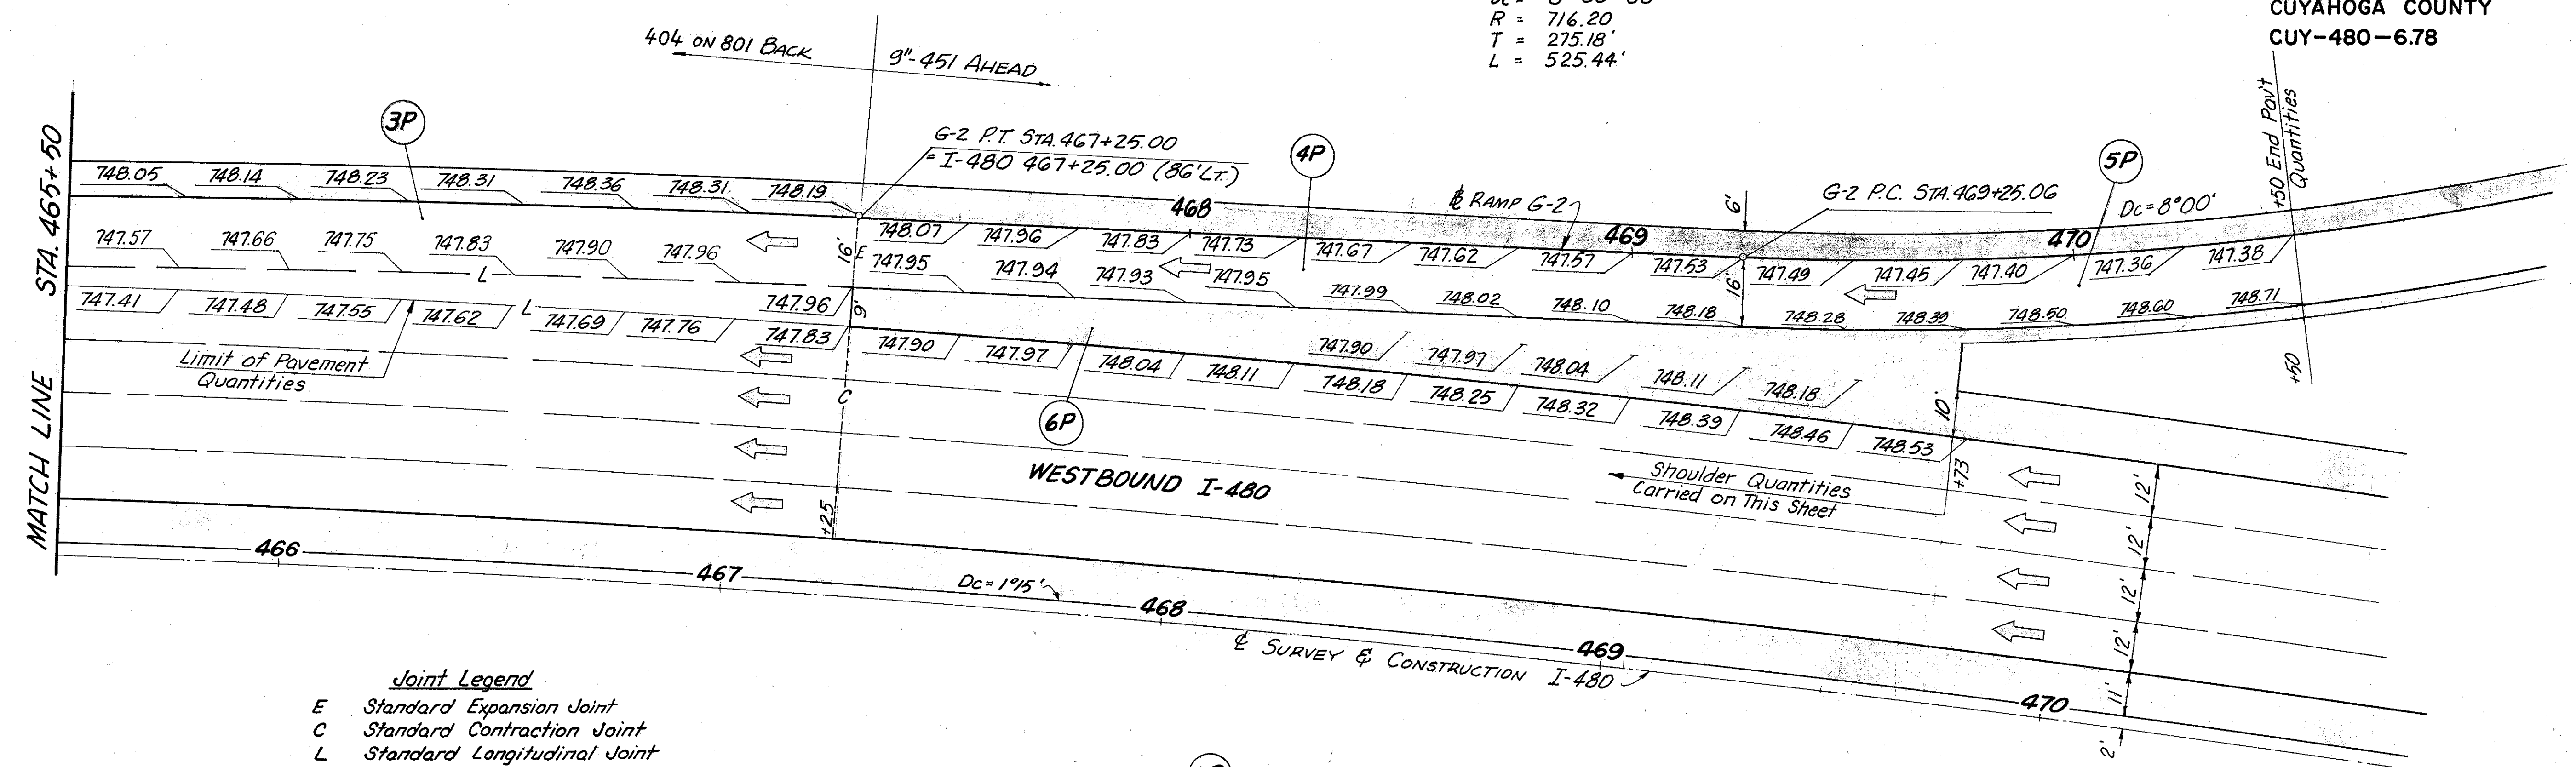 R = 716.20
T = 275.18'
L = 525.44'
CUYAHOGA COUNTY
CUY-480-6.78
404 ON 801 BACK
9"-451 AHEAD
MATCH LINE STA. 465+50
3P
G-2 P.T. STA. 467+25.00
= I-480 467+25.00 (86' LT.)
4P
5P
+50 End Pav't
Quantities
748.05 748.14 748.23 748.31 748.36 748.31 748.19
468
℄ RAMP G-2
6'
G-2 P.C. STA. 469+25.06
Dc = 8°00'
469
470
748.07 747.96 747.83 747.73 747.67 747.62 747.57 747.53 747.49 747.45 747.40 747.36 747.38
747.57 747.66 747.75 747.83 747.90 747.96
16'
E
16'
747.95 747.94 747.93 747.95 747.99 748.02 748.10 748.18 748.28 748.39 748.50 748.60 748.71
L
L
747.41 747.48 747.55 747.62 747.69 747.76 747.96
6'
747.83 747.90 747.97 748.04 748.11 748.18 748.25 748.32 748.39 748.46 748.53
747.90 747.97 748.04 748.11 748.18
Limit of Pavement
Quantities
C
6P
10'
+50
+73
+25
WESTBOUND I-480
Shoulder Quantities
Carried on This Sheet
12'
12'
12'
12'
11'
2'
466
467
Dc = 1°15'
468
℄ SURVEY & CONSTRUCTION I-480
469
470
Joint Legend
E Standard Expansion Joint
C Standard Contraction Joint
L Standard Longitudinal Joint